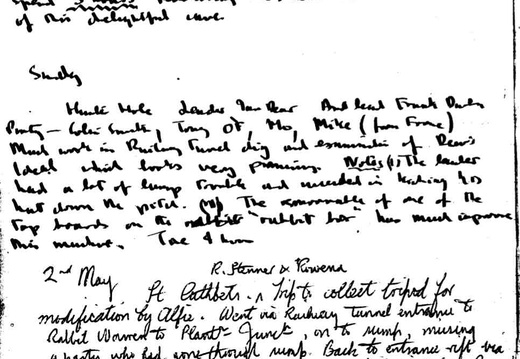 of this delightful cave.
Sunday
Hunts Hole Leader Ian Dear And lead Frank Darbon
Party – Colin Smith, Tony O'F, Mo, Mike (from Frome)
Much work in Railway Tunnel dig and examination of Dear's
Ideal which looks very promising. Notes (1) The leader
had a lot of lamp trouble and succeeded in kicking his
hat down the pitch. The removal of one of the
top boards on the "rabbit hole" has much improved
this matter. Time 4 hours
2nd May R. Stenner & Rowena
St Cuthberts. A trip to collect tripod for
modification by Alfie. Went via Railway tunnel entrance to
Rabbit Warren to Plant Junct, on to sump, missing
a party who had gone through sump. Back to entrance rift via